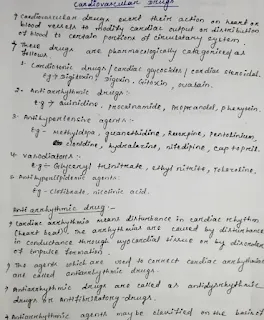 Cardiovascular Drugs
Cardiovascular drugs exert their action on heart or
blood vessels to modify cardiac output or distribution
of blood to certain portions of circulatory system.
These drugs are pharmacologically categorised as
follows
1. Cardiotonic drugs / cardiac glycosides / cardiac steroidal.
eg → Digitoxin, Digoxin, Gitoxin, ouabain.
2. Antiarrhythmic drugs:
e.g → Quinidine, Procainamide, Propranolol, phenytoin.
3. Antihypertensive agents:
Eg - methyldopa, guanethidine, Reserpine, Pentolinium,
Clonidine, hydralazine, nifedipine, captopril.
4. vasodilators:
Eg - Glyceryl trinitrate, ethyl nitrite,
5. Antihyperlipidemic agents:
Eg - Clofibrate, nicotinic acid.
Anti arrhythmic drug:-
Cardiac arrhythmia means disturbance in cardiac rhythm
(heart beat). The arrhythmias are caused by disturbance
in conductance through myocardial tissue or by disorder
of impulse formation.
The agents which are used to correct cardiac arrhythmias
are called antiarrhythmic drugs.
Antiarrhythmic drugs are called as antidysrhythmic
drugs or Antifibrillatory drugs.
Antiarrhythmic agents may be classified on the basis of